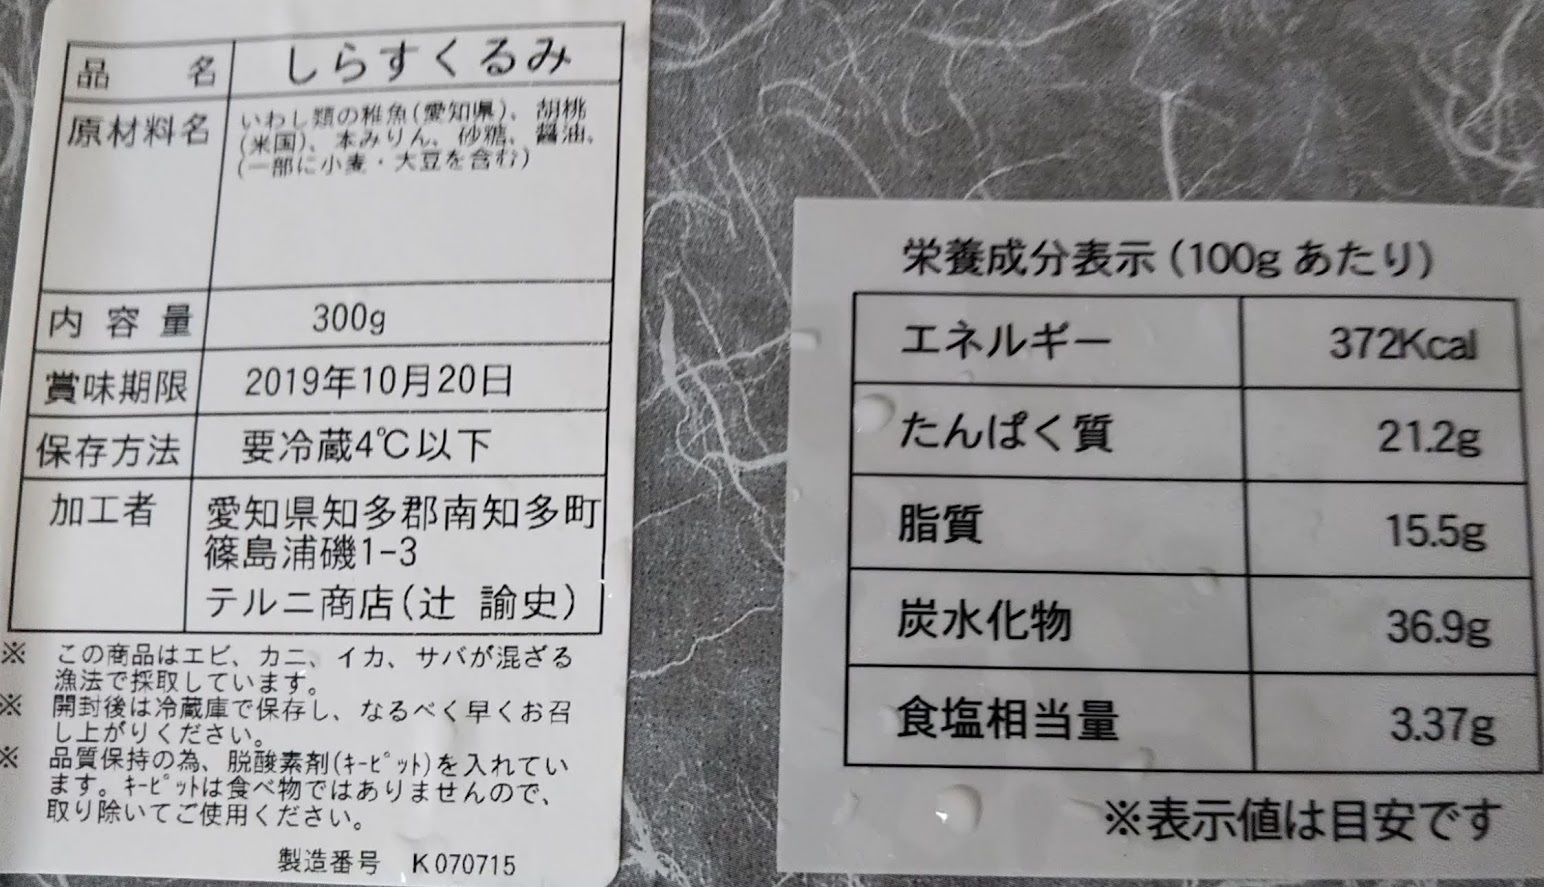 品名 しらすくるみ
原材料名 いわし類の稚魚(愛知県)、胡桃
(米国)、本みりん、砂糖、醤油、
(一部に小麦・大豆を含む)
内容量 300g
賞味期限 2019年10月20日
保存方法 要冷蔵4℃以下
加工者 愛知県知多郡南知多町
篠島浦磯1-3
テルニ商店(辻 諭史)
※ この商品はエビ、カニ、イカ、サバが混ざる
漁法で採取しています。
※ 開封後は冷蔵庫で保存し、なるべく早くお召
し上がりください。
※ 品質保持の為、脱酸素剤(ｷｰﾋﾟｯﾄ)を入れてい
ます。ｷｰﾋﾟｯﾄは食べ物ではありませんので、
取り除いてご使用ください。
製造番号 K070715
栄養成分表示(100gあたり)
エネルギー 372Kcal
たんぱく質 21.2g
脂質 15.5g
炭水化物 36.9g
食塩相当量 3.37g
※表示値は目安です